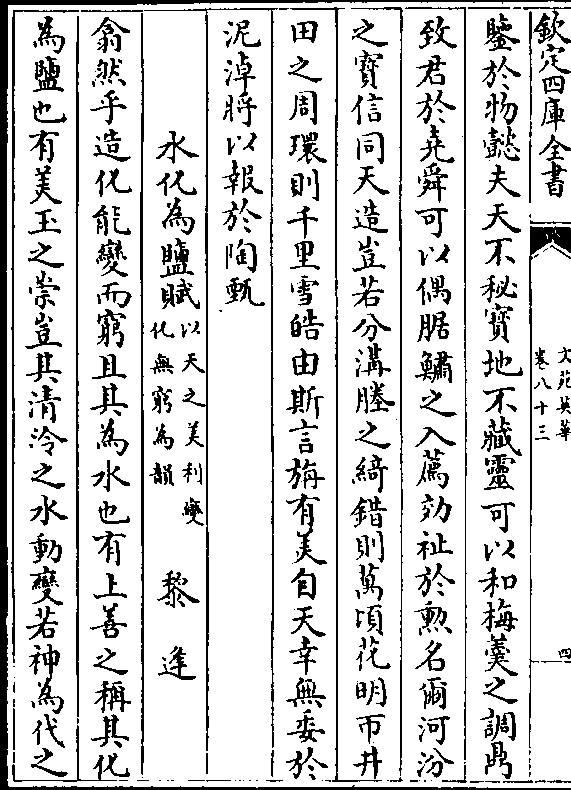 欽定四庫全書
文苑英華
卷八十三
四
鹽於物懿夫天不秘寳地不藏靈可以和梅羮之調鼎
致君於堯舜可以偶腒鱐之入薦効祉於勲名爾河汾
之寳信同天造豈若分溝塍之綺錯則萬頃花明帀井
田之周環則千里雪皓由斯言旃有美自天幸無委於
泥淖將以報於陶甄
水化為鹽賦以天之美利變化無窮為韻 黎逢
翕然乎造化能變而窮且其為水也有上善之稱其化
為鹽也有美玉之崇豈其清泠之水動變若神為代之